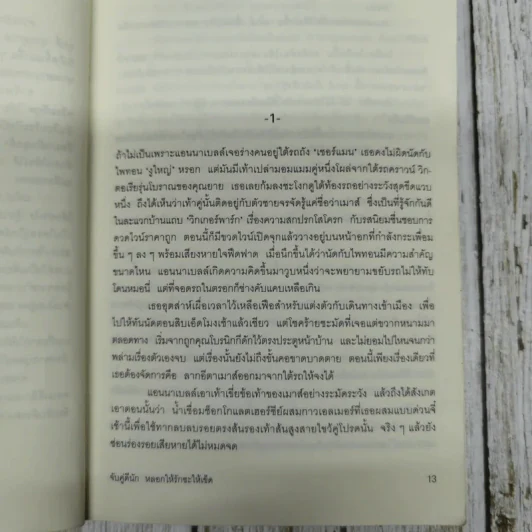 -1-
ถ้าไม่เป็นเพราะแอนนาเบลล์เจอร่างคนอยู่ใต้รถถัง 'เชอร์แมน' เธอคงไม่ผิดนัดกับ
ไพทอน 'งูใหญ่' หรอก แต่มันมีเท้าเปล่ามอมแมมคู่หนึ่งโผล่จากใต้รถคราวน์ วิก-
ตอเรียรุ่นโบราณของคุณยาย เธอเลยก้มลงชะโงกดูใต้ท้องรถอย่างระวังสุดขีดแวบ
หนึ่ง ถึงได้เห็นว่าเท้าคู่นั้นติดอยู่กับตัวชายจรจัดรู้แค่ชื่อว่าเมาส์ ซึ่งเป็นที่รู้จักกันดี
ในละแวกบ้านแถบ 'วิกเกอร์พาร์ก' เรื่องความสกปรกโสโครก กับรสนิยมชื่นชอบการ
ดวดไวน์ราคาถูก ตอนนี้ก็มีขวดไวน์เปิดจุกแล้ววางอยู่บนหน้าอกที่กำลังกระเพื่อม
ขึ้น ๆ ลง ๆ พร้อมเสียงหายใจฟืดฟาด เมื่อนึกขึ้นได้ว่านัดกับไพทอนมีความสำคัญ
ขนาดไหน แอนนาเบลล์เกิดความคิดขึ้นมาวูบหนึ่งว่าจะพยายามขยับรถไม่ให้ทับ
โดนหมอนี่ แต่ที่จอดรถในตรอกก็ช่างคับแคบเหลือเกิน
เธออุตส่าห์เผื่อเวลาไว้เหลือเฟือสำหรับแต่งตัวกับเดินทางเข้าเมือง เพื่อ
ไปให้ทันนัดตอนสิบเอ็ดโมงเช้าแล้วเชียว แต่โชคร้ายชะมัดที่เจอแต่ขวากหนามมา
ตลอดทาง เริ่มจากถูกคุณโบรนิกกี้ดักไว้ตรงประตูหน้าบ้าน และไม่ยอมไปไหนจนกว่า
พล่ามเรื่องตัวเองจบ แต่เรื่องนั้นยังไม่ถึงขั้นคอขาดบาดตาย ตอนนี้เพียงเรื่องเดียวที่
เธอต้องจัดการคือ ลากอีตาเมาส์ออกมาจากใต้รถให้จงได้
แอนนาเบลล์เอาเท้าเขี่ยข้อเท้าของเมาส์อย่างระมัดระวัง แล้วถึงได้สังเกต
เอาตอนนั้นว่า น้ำเชื่อมช็อกโกแลตเฮอร์ชีย์ผสมกาวเอลเมอร์ที่เธอผสมแบบด่วนจี๋
เช้านี้เพื่อใช้ทากลบลบรอยตรงส้นรองเท้าส้นสูงสายไขว้คู่โปรดนั้น จริง ๆ แล้วยัง
ซ่อนร่องรอยเสียหายได้ไม่หมดจด
จับคู่ดีนัก หลอกให้รักซะให้เข็ด
13